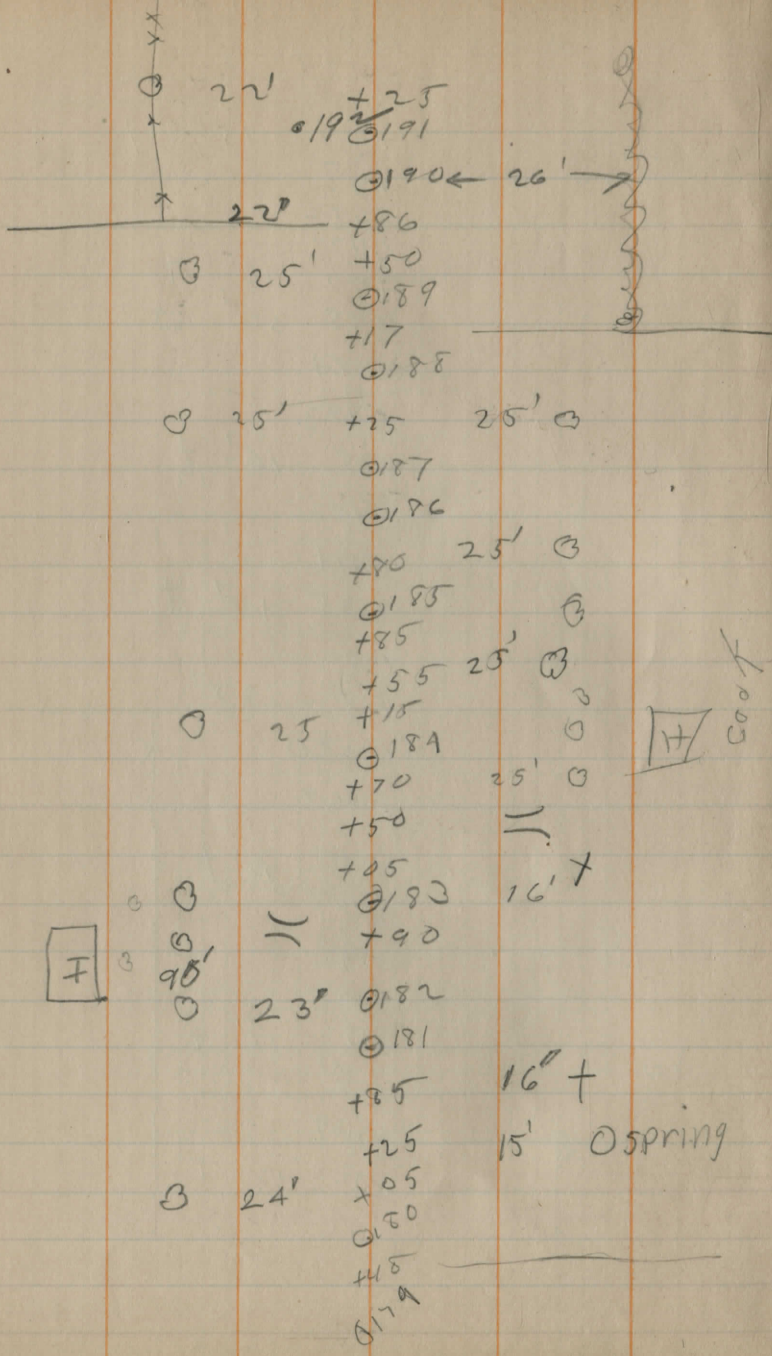 22' +25
192 191
190 ← 26' →
22' +86
25' +50
189
+17
188
25' +25 25'
187
186
25'
+80
185
+85
+55 25'
25 +15
184
+70 25'
+50
+05
183 16' +
+90
H 90'
23' 182
181
+85 16' +
+25 15' O spring
24' +05
180
+45
179
H Cook